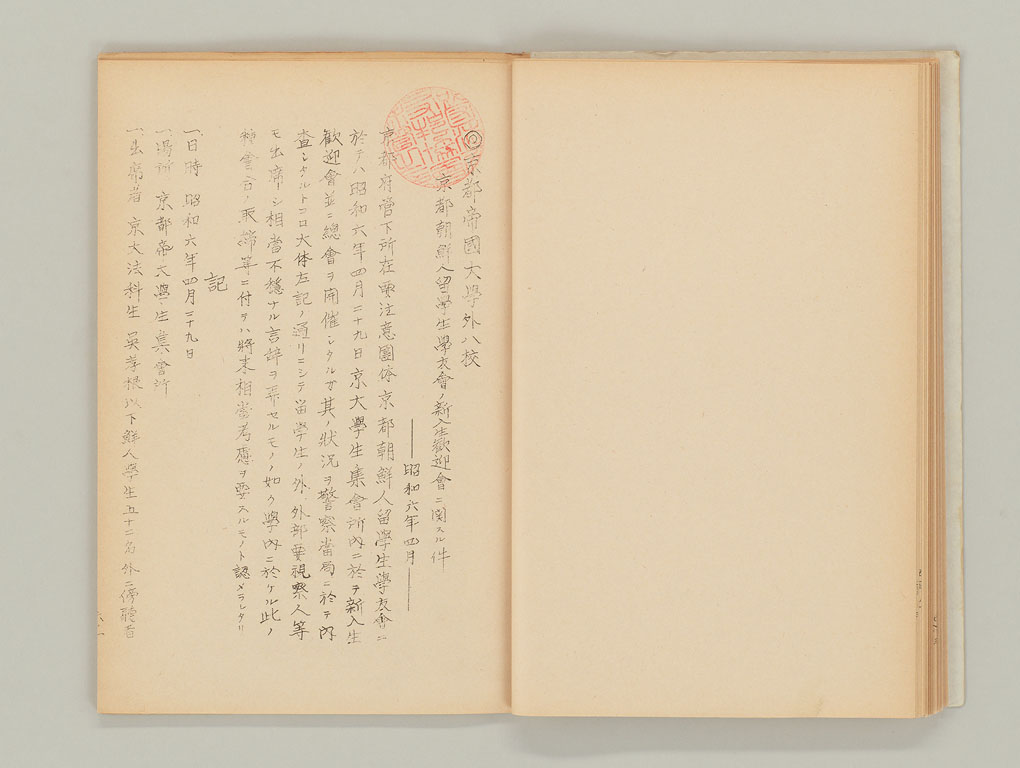 ◎京都帝國大學外八校
京都朝鮮人留學生學友會ノ新入生歡迎會ニ関スル件
昭和六年四月
京都府管下所在要注意團体京都朝鮮人留學生學友會ニ
於テハ昭和六年四月二十九日京大學生集會所內ニ於テ新入生
歡迎會並ニ總會ヲ開催シタルガ其ノ狀況ヲ警察當局ニ於テ內
査シタルトコロ大体左記ノ通リニシテ留學生ノ外外部要視察人等
モ出席シ相當不穩ナル言辞ヲ弄セルモノノ如ク學內ニ於ケル此ノ
種會合ノ取締等ニ付テハ將来相當考慮ヲ要スルモノト認メラレタリ
記
一、日時 昭和六年四月二十九日
一、場所 京都帝大學生集會所
一、出席者 京大法科生 吳 根以下鮮人學生五十二名外ニ傍聽者